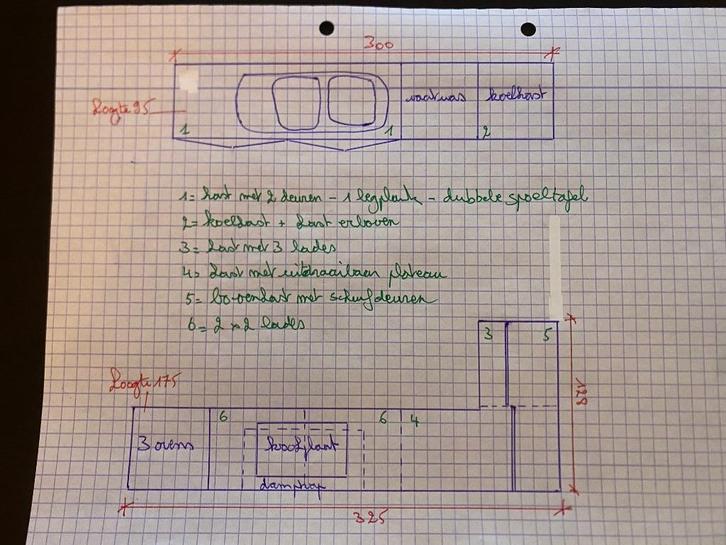 300
vaatwas
koelkast
Hoogte 95
1
1
2
1= kast met 2 deuren - 1 legplank - dubbele spoeltafel
2= koelkast + kast erboven
3= kast met 3 lades
4= kast met uitdraaibaar plateau
5= bovenkast met schuifdeuren
6= 2 x 2 lades
3
5
Hoogte 175
128
6
6
4
3 ovens
kookplaat
dampkap
325